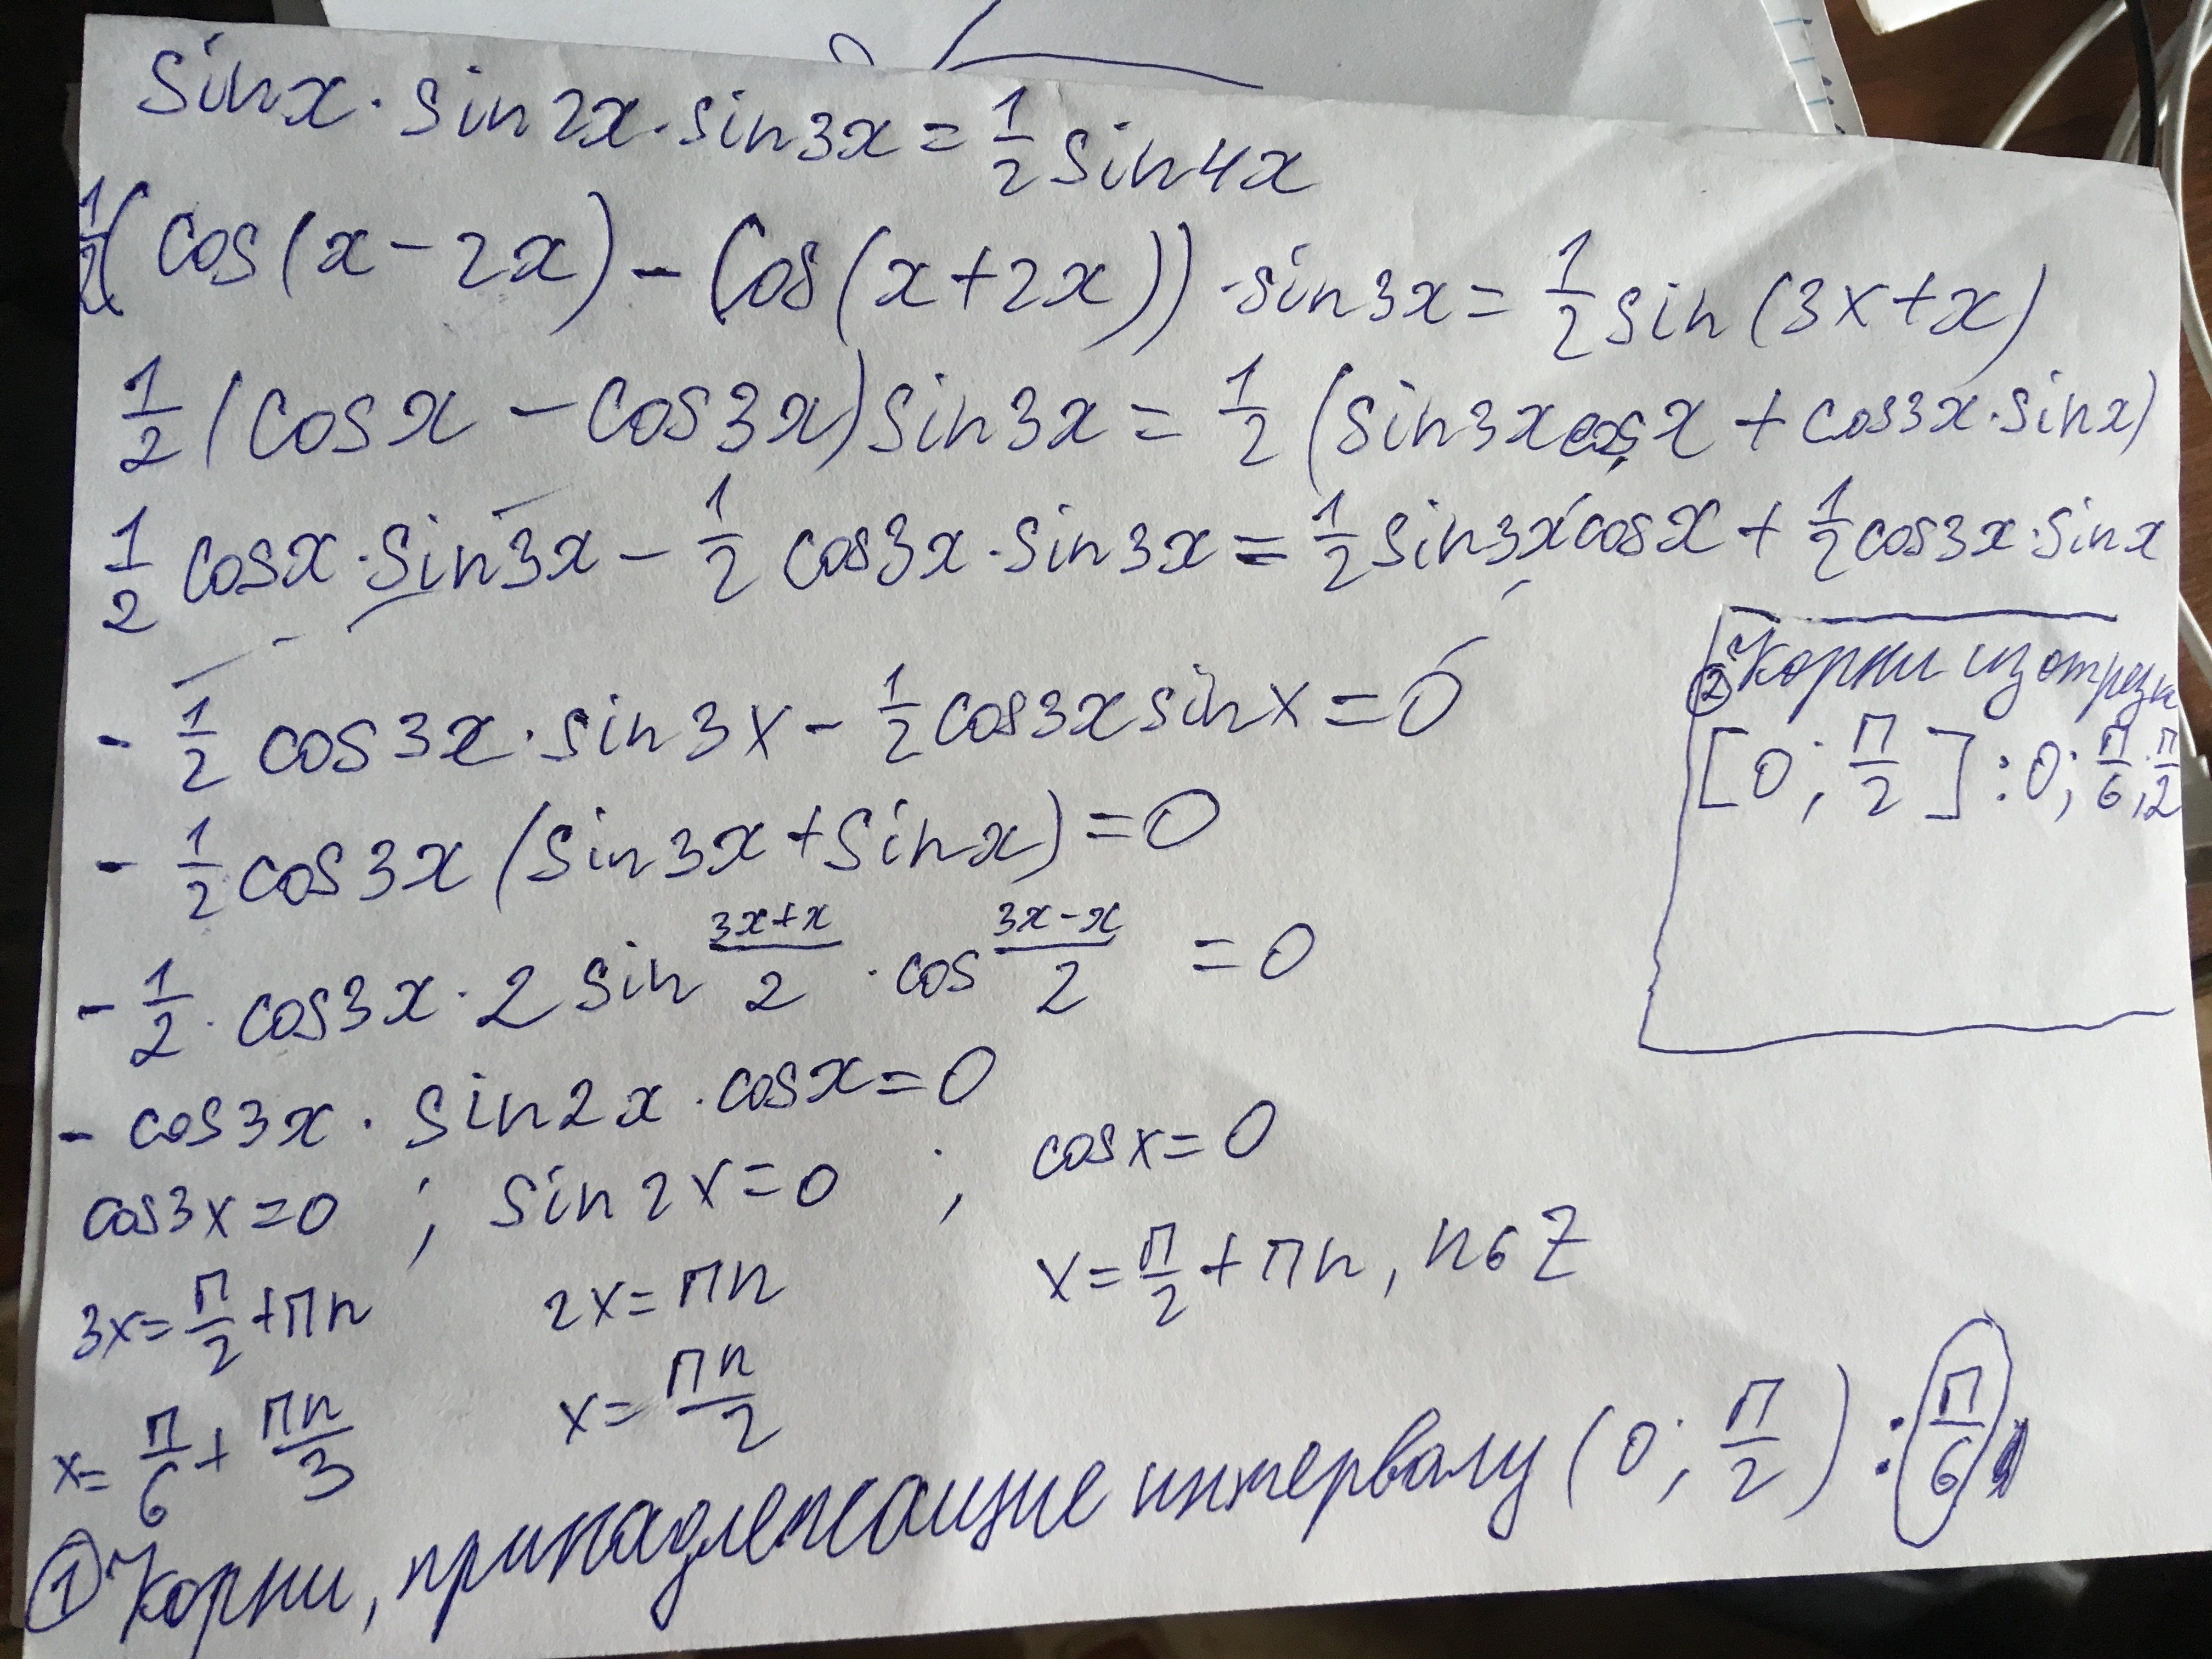 sinx · sin2x · sin3x = 1/2 sin4x
1/2(cos(x-2x) - (cos(x+2x)) · sin3x = 1/2 sin(3x+x)
1/2(cosx - cos3x)sin3x = 1/2(sin3x cosx + cos3x · sinx)
1/2 cosx · sin3x - 1/2 cos3x · sin3x = 1/2 sin3x cosx + 1/2 cos3x · sinx
- 1/2 cos3x · sin3x - 1/2 cos3x sinx = 0
- 1/2 cos3x (sin3x + sinx) = 0
- 1/2 · cos3x · 2 sin (3x+x)/2 · cos (3x-x)/2 = 0
- cos3x · sin2x · cosx = 0
cos3x = 0 ; sin2x = 0 ; cosx = 0
3x = π/2 + πn 2x = πn x = π/2 + πn, n ∈ Z
x = π/6 + πn/3 x = πn/2
① Корни, принадлежащие интервалу (0; π/2) : π/6
② Корни из отрезк
[0; π/2] : 0; π/6; π/2